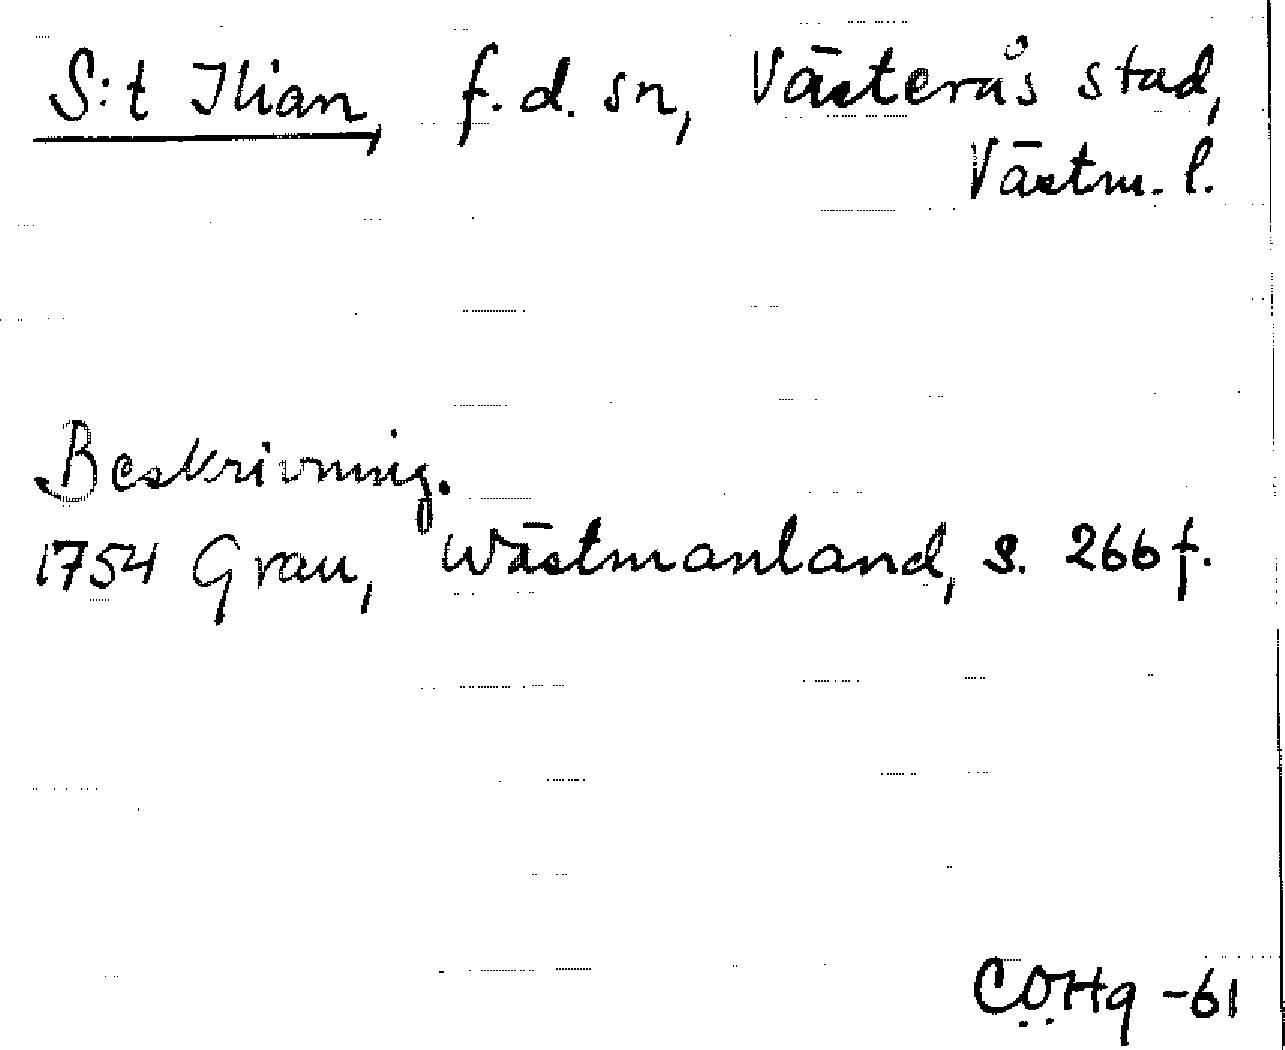 S:t Ilian, f.d. sn, Västerås stad,
Västm. l.
Beskrivning.
1754 Grau, Wästmanland, s. 266 f.
CÖHg -61